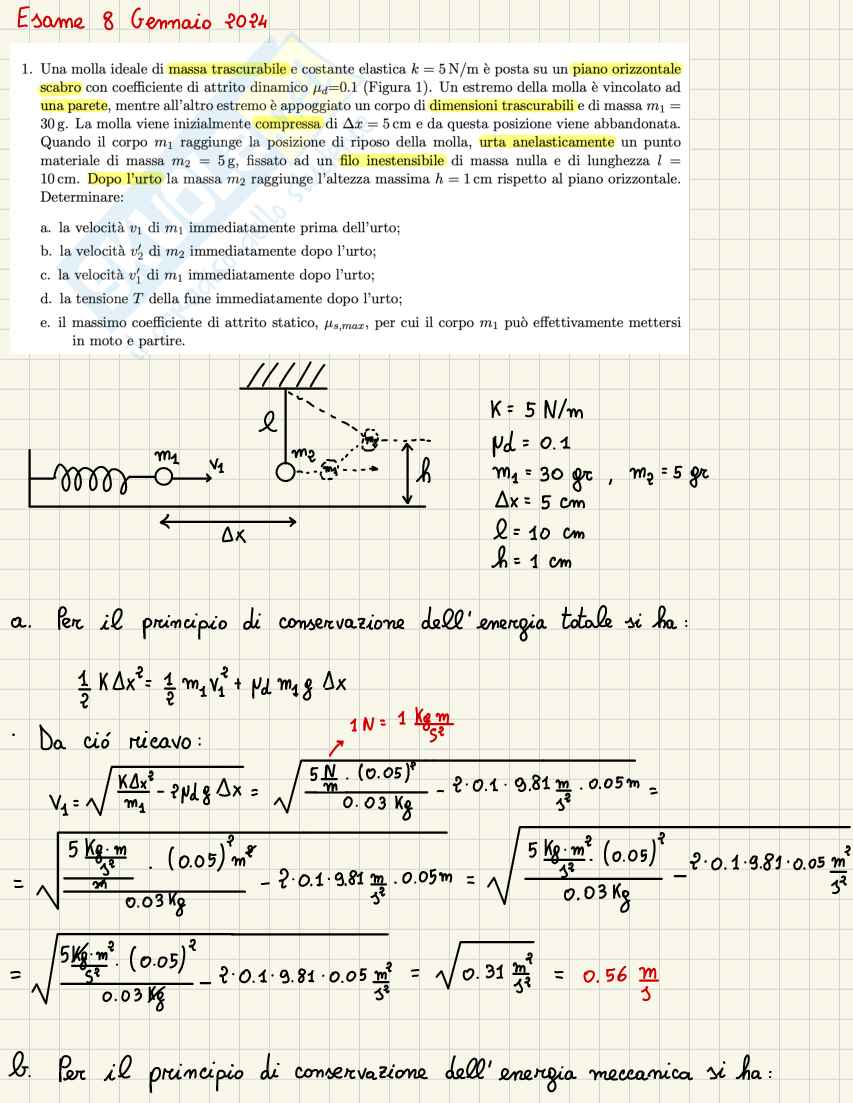 Esame 8 Gennaio 2024
1. Una molla ideale di massa trascurabile e costante elastica k = 5 N/m è posta su un piano orizzontale
scabro con coefficiente di attrito dinamico μd=0.1 (Figura 1). Un estremo della molla è vincolato ad
una parete, mentre all'altro estremo è appoggiato un corpo di dimensioni trascurabili e di massa m₁ =
30 g. La molla viene inizialmente compressa di Δx = 5 cm e da questa posizione viene abbandonata.
Quando il corpo m₁ raggiunge la posizione di riposo della molla, urta anelasticamente un punto
materiale di massa m₂ = 5 g, fissato ad un filo inestensibile di massa nulla e di lunghezza l =
10 cm. Dopo l'urto la massa m₂ raggiunge l'altezza massima h = 1 cm rispetto al piano orizzontale.
Determinare:
a. la velocità v₁ di m₁ immediatamente prima dell'urto;
b. la velocità v₂′ di m₂ immediatamente dopo l'urto;
c. la velocità v₁′ di m₁ immediatamente dopo l'urto;
d. la tensione T della fune immediatamente dopo l'urto;
e. il massimo coefficiente di attrito statico, μs,max, per cui il corpo m₁ può effettivamente mettersi
in moto e partire.
l
m₁
v₁
m₂
h
Δx
K = 5 N/m
μd = 0.1
m₁ = 30 gr , m₂ = 5 gr
Δx = 5 cm
l = 10 cm
h = 1 cm
a. Per il principio di conservazione dell'energia totale si ha:
1/2 KΔx² = 1/2 m₁v₁² + μd m₁ g Δx
· Da ció ricavo:
1N = 1 Kg m/s²
V₁ = √(KΔx²/m₁ - 2μd g Δx) = √(5 N/m · (0.05)²/0.03 Kg - 2·0.1·9.81 m/s² · 0.05m =
= √(5 Kg·m/s²/m · (0.05)² m²/0.03 Kg - 2·0.1·9.81 m/s² · 0.05m = √(5 Kg·m²/s² · (0.05)²/0.03 Kg - 2·0.1·9.81·0.05 m²/s²
= √(5 Kg·m²/s² · (0.05)²/0.03 Kg - 2·0.1·9.81·0.05 m²/s² = √(0.31 m²/s²) = 0.56 m/s
b. Per il principio di conservazione dell'energia meccanica si ha: